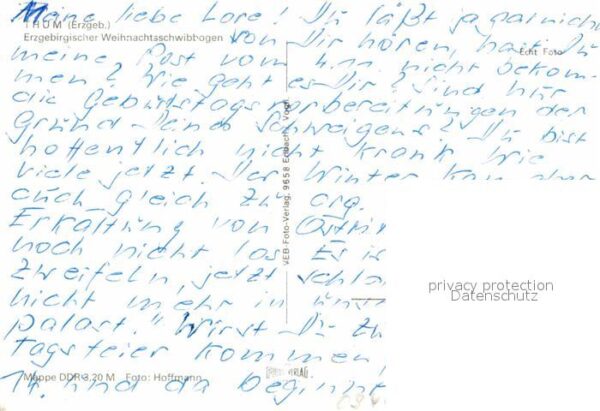 Meine liebe Lore! Du läßt ja gar nichts
THUM (Erzgeb.)
Erzgebirgischer Weihnachtsschwibbogen
von Dir hören, hast Du
Echt Foto
meine Post vom 4.11. nicht bekom-
men? Wie geht es Dir? Sind nur
die Geburtstagsvorbereitungen der
Grund Deines Schweigens? Du bist
hoffentlich nicht krank wie
viele jetzt. Der Winter kam aber
auch gleich zu arg.
Erkältung von
noch nicht los. Es is
zweifeln, jetzt
nicht mehr in
palast." Wirst Du zu
tagsfeier kommen
Mappe DDR 3,20 M Foto: Hoffmann
14. und da beginnt
VEB-Foto-Verlag, 9658 Erlbach i. Vogtl.
privacy protection
Datenschutz